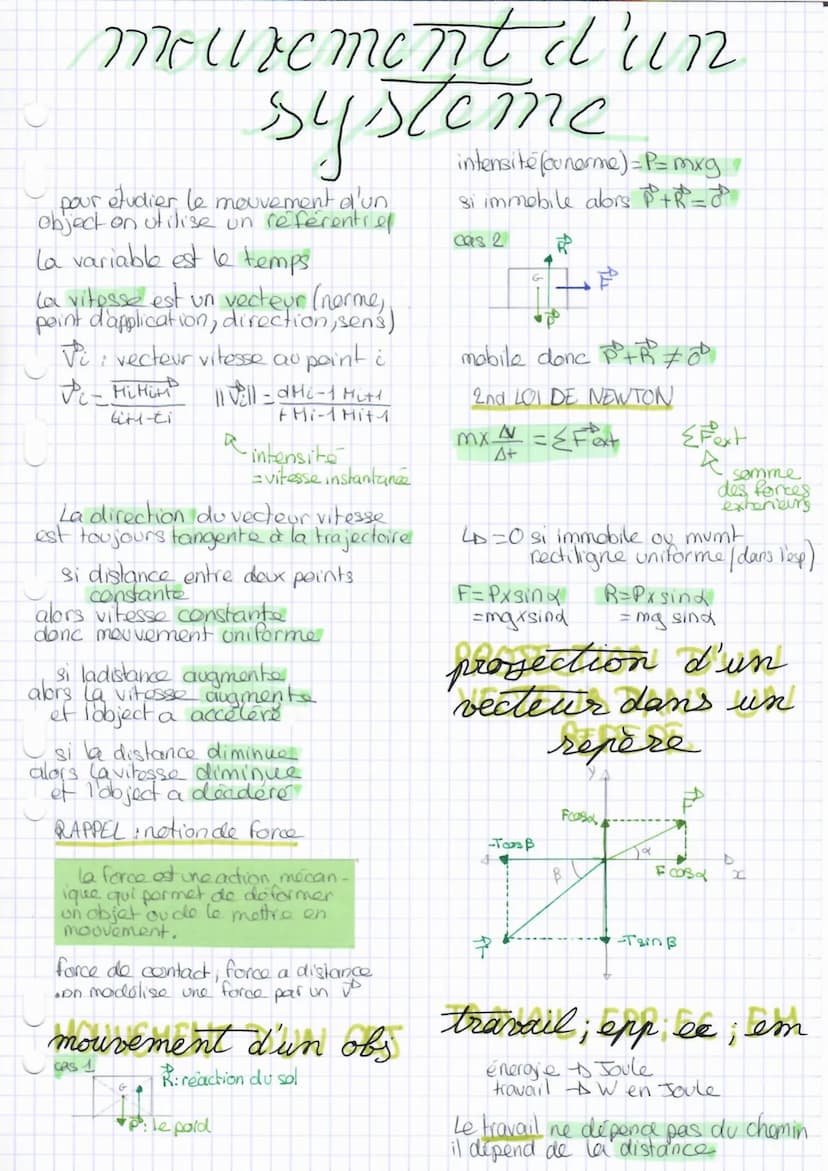 mouvement d'un
système
pour étudier le mouvement d'un
object on utilise un référentiel
la variable est le temps
La vitesse est un vecteur (norme,
point d'application, direction, sens)
V⃗i : vecteur vitesse au point i
V⃗i = MiMi+1 / ti+1-ti ||V⃗i|| = dMi-1 Mi+1 / tMi-1 Mi+1
intensité
= vitesse instantanée
La direction du vecteur vitesse
est toujours tangente à la trajectoire
si distance entre deux points
constante
alors vitesse constante
donc mouvement uniforme
si la distance augmente
alors la vitesse augmente
et l'object a accéléré
si la distance diminue
alors la vitesse diminue
et l'object a décéléré
RAPPEL : notion de force
la force est une action mécan-
ique qui permet de déformer
un objet ou de le mettre en
mouvement.
force de contact, force a distance
on modélise une force par un V⃗
mouvement d'un obj
cas 1
G
R⃗ : réaction du sol
P⃗ : le poid
intensité (ou norme) = P = mxg
si immobile alors P⃗ + R⃗ = 0⃗
cas 2
R⃗
G
F⃗
P⃗
mobile donc P⃗ + R⃗ ≠ 0⃗
2nd LOI DE NEWTON
mx ΔV/Δt = ΣF⃗ext ΣF⃗ext
somme
des forces
exterieurs
↳ = 0 si immobile ou mvmt
rectiligne uniforme (dans l'esp)
F = Pxsinα R = Pxsinα
= mgxsinα = mg sinα
projection d'un
vecteur dans un
repère
y
F⃗
Fcosα
-Tcosβ
α
β
F cosα
x
T⃗
-Tsinβ
travail ; epp ; ec ; em
énergie → Joule
travail → W en Joule
Le travail ne dépend pas du chemin
il dépend de la distance